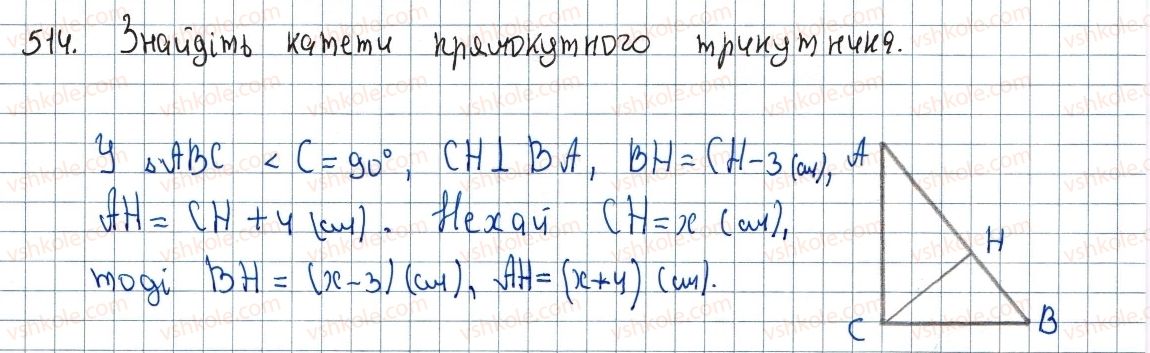 514. Знайдіть катети прямокутного трикутника.
У △ABC < C = 90°, CH ⊥ BA, BH = CH - 3 (см),
AH = CH + 4 (см). Нехай CH = x (см),
тоді BH = (x - 3) (см), AH = (x + 4) (см).
A
H
C
B
vshkole.com